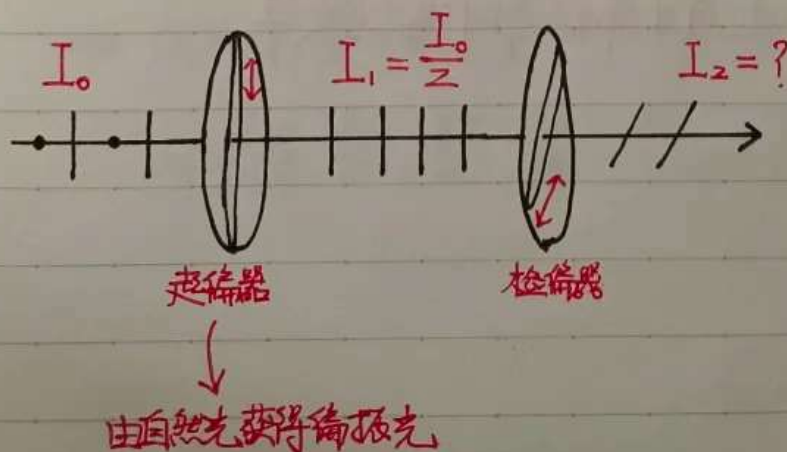 I₀
I₁ = I₀/2
I₂ = ?
起偏器
检偏器
由自然光获得偏振光